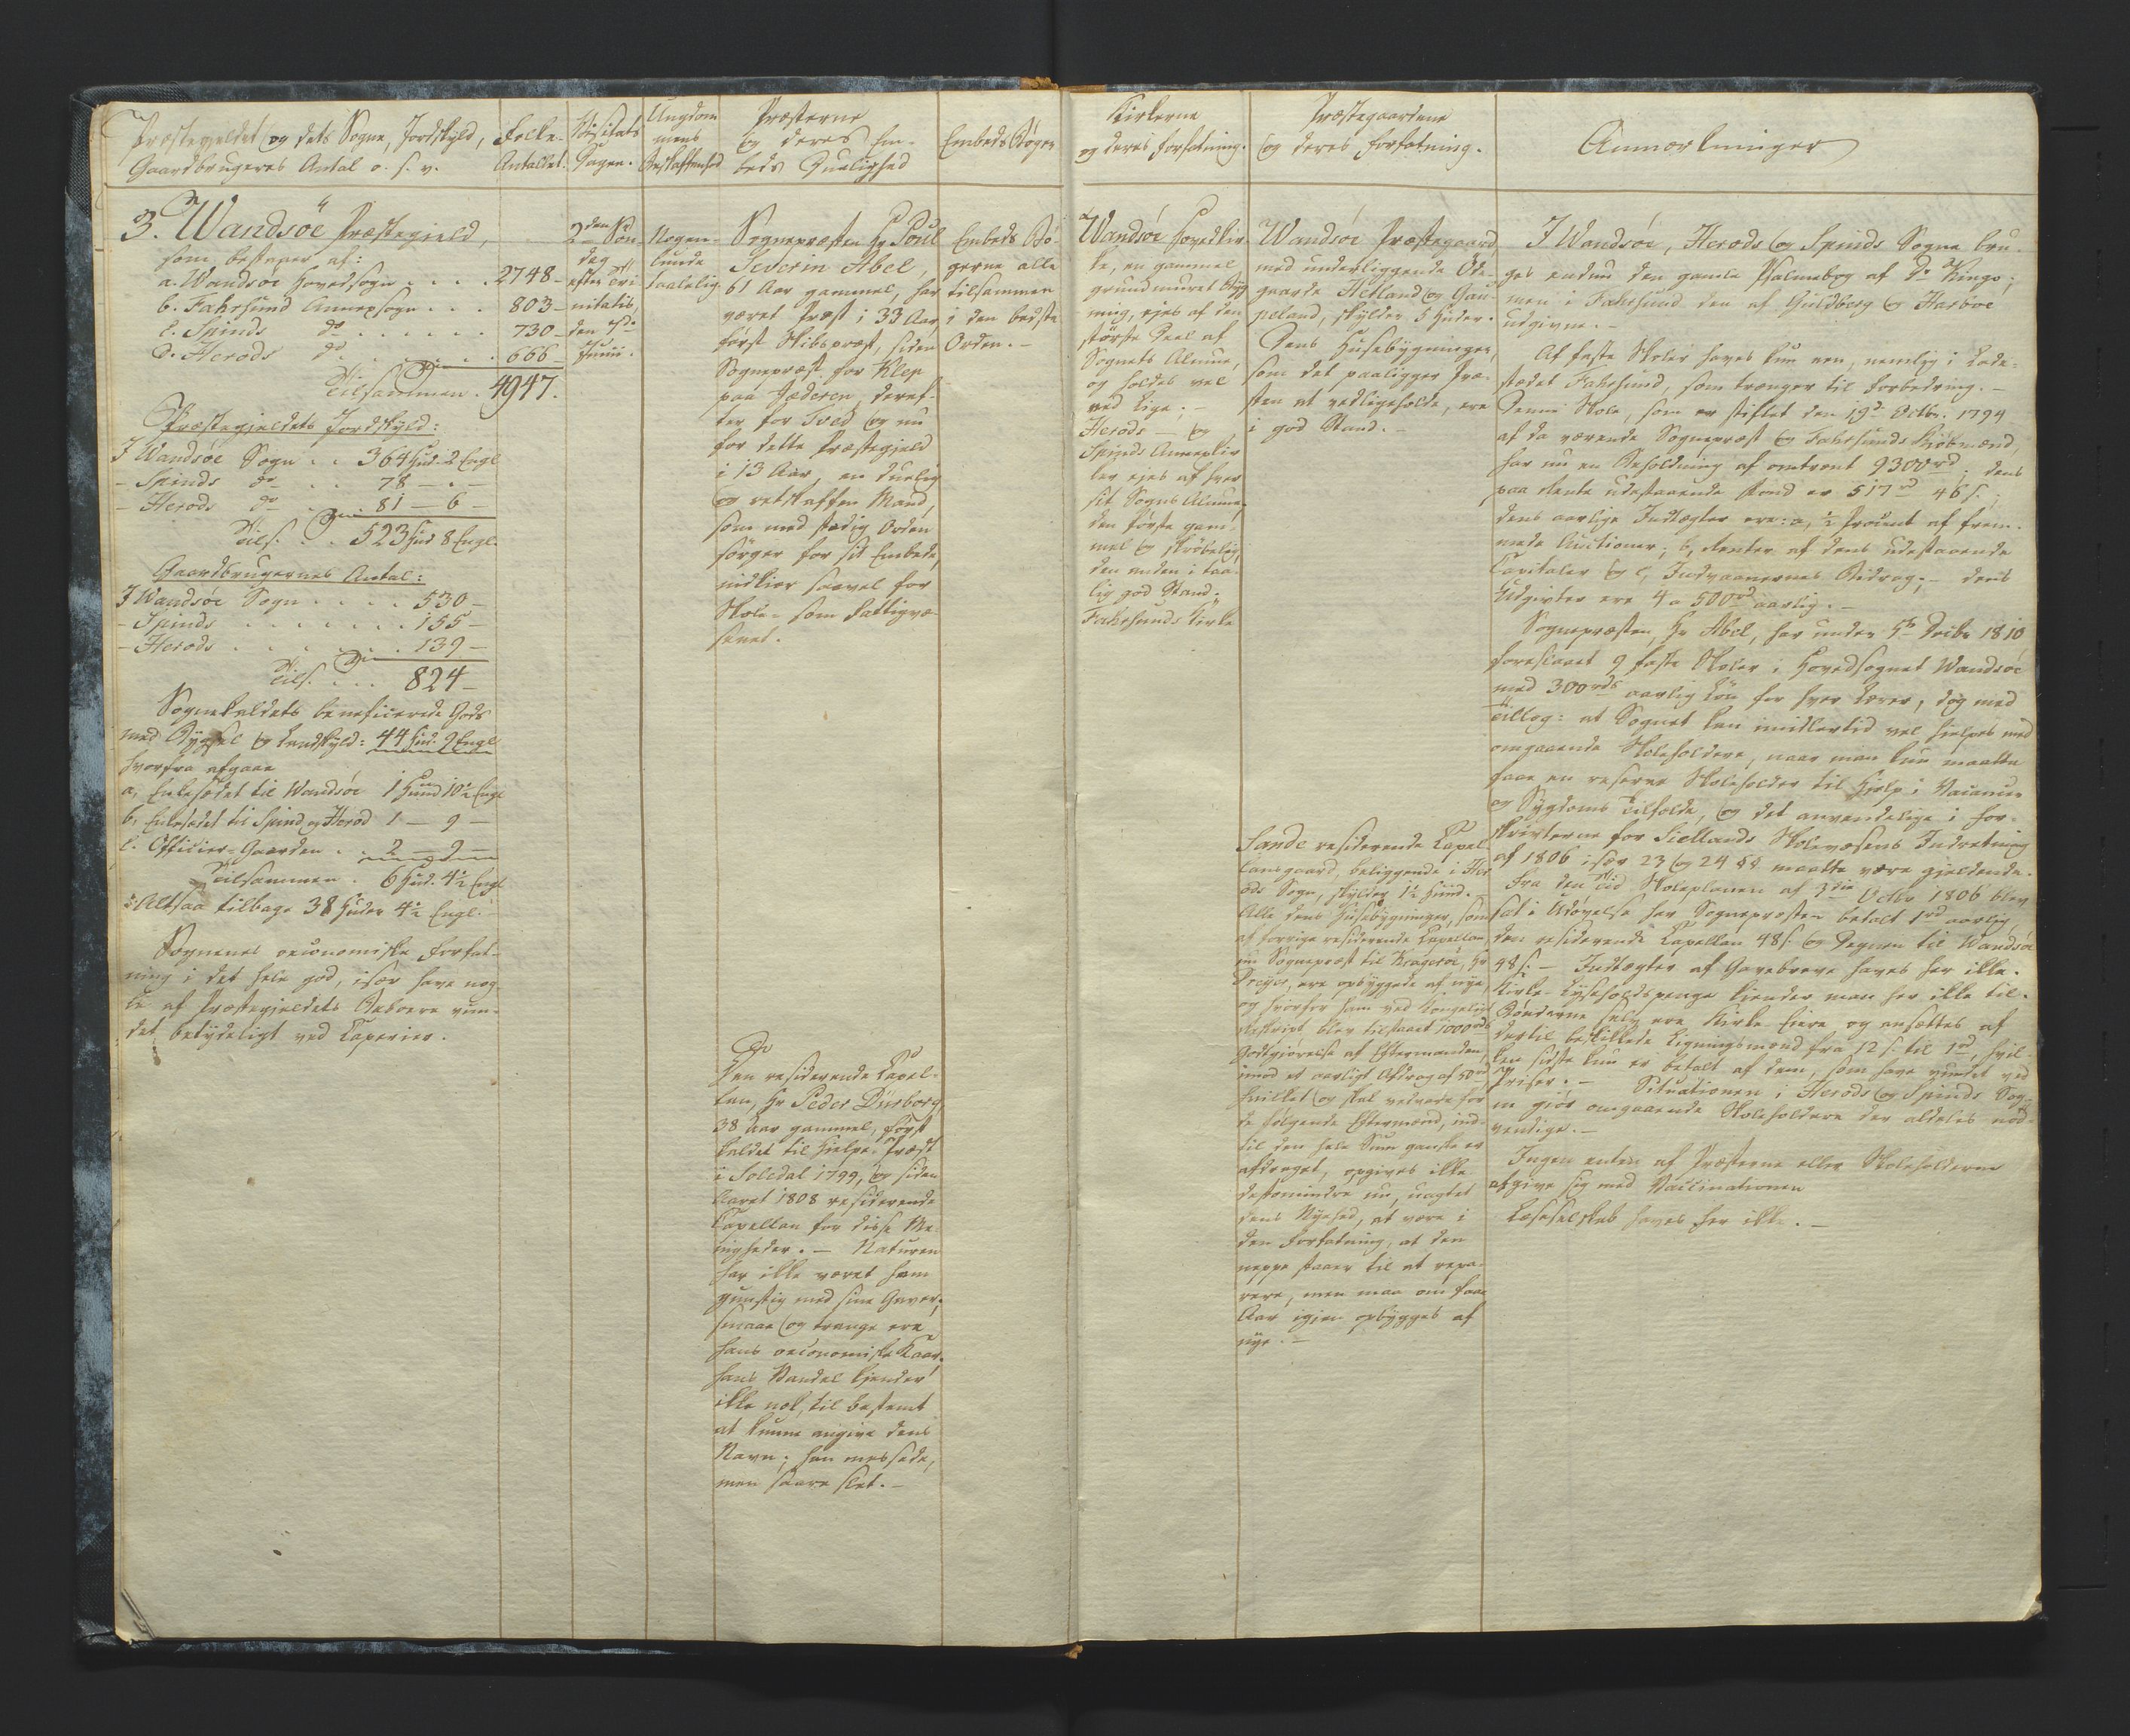 Præstegjeldet og dets Sogne, Jordskyld,
Gaardbrugeres Antal o. s. v.
Folke-
Antallet.
Visitats
Dagen.
Ungdom
mens
Beskaffenhed
Præsterne
og deres Em-
beds Duelighed
Embeds Bøger
3. Wandsöe Præstegield,
som bestaaer af:
a. Wandsöe Hovedsogn . . . . 2748 -
b. Fahrsund Annexsogn . . . 803 -
c. Spinds do . . . . . . 730 -
d. Herods do . . . . . . 666 -
Tilsammen . 4947.
Præstegjeldets Jordskyld:
I Wandsöe Sogn . . 364 Hud. 2 Engl
- Spinds do . . 78 - . -
- Herods do . . 81 - 6 -
Tils. . . 523 Hud 8 Engl.
Gaardbrugernes Antal:
I Wandsöe Sogn . . . . 530 -
- Spinds . . . . . . . 155 -
- Herods . . . . . . . 139 -
Tils. . . . 824 -
Sognekaldets beneficerede Gods
med Bygsel og Landskyld: 44 Hud. 9 Engl
hvorfra afgaae
a, Enkesædet til Wandsöe 1 Huud 10½ Engl
b, Enkesædet til Spind og Herod 1 - 9 -
c. Officier-Gaarden . . 2 - 9 -
Tilsammen . 6 Hud. 4½ Engl
Altsaa tilbage 38 Huder 4½ Engl.
Sognenes oeconomiske Forfat-
ning i det hele god, især have nog-
le af Præstegjeldets Beboere vun-
det betydeligt ved Caperier.
2den Søn
dag
efter Tri
nitatis,
den
Junii.
Nogen-
lunde
taalelig.
Sognepræsten Hr Poul
Severin Abel,
61 Aar gammel, har
været Præst i 33 Aar,
først Skibspræst, siden
Sognepræst for Klep
paa Jæderen, deref-
ter for Tved og nu
for dette Præstegjeld
i 13 Aar, en duelig
og retskaffen Mand,
som med stadig Orden
sörger for sit Embede,
nidkier saavel for
Skole- som Fattigvæ-
senet.
Den residerende Capel-
lan, Hr Peder Dürborg,
38 Aar gammel, først
kaldet til Hielpe-Præst
i Soledal 1799, og siden
Aaret 1808 residerende
Capellan for disse Me-
nigheder. - Naturen
har ikke været ham
gunstig med sine Gaver;
smaae og trange ere
hans oeconomiske Kaar,
hans Vandel kjender
ikke nok, til bestemt
at kunne angive dens
Navn; han messede,
men saare slet. -
Embeds Bö-
gerne alle
tilsammen
i den bedste
Orden. -
Kirkerne
og deres Forfatning.
Præstegaardene
og deres Forfatning.
Anmærkninger
Wandsöe Hovedkir-
ke, en gammel
grundmuret Byg
ning, ejes af den
største Deel af
Sognets Almue,
og holdes vel
ved lige; -
Herods - og
Spinds Annexkir
ker ejes af hver
sit Sogns Almue,
den første gam-
mel og skröbelig,
den anden i taa-
lig god Stand;
Fahrsunds Kirke
Wandsöe Præstegaard
med underliggende Öde-
gaarde Hetland og Gau-
peland, skylder 5 Huder.
Dens Huusebygninger,
som det paaligger Præ-
sten at vedligeholde, ere
i god Stand. -
Sande residerende Capel-
lansgaard, beliggende i Her
ods Sogn, skylder 1½ Huud.
Alle dens Huusebygninger, som
af forrige residerende Capellan,
nu Sognepræst til Kragerøe, Hr
Dreyer, ere opbyggede af nye,
og hvorfor ham ved Kongelig
Rescript blev tilstaaet 1000 rd
Godtgiørelse af Eftermanden,
imod et aarligt Afdrag af 50 rd,
hvilket og skal vedvare for
de følgende Eftermænd, ind-
til den hele Sum ganske er
afdraget, opgives ikke
destomindre nu, uagtet
dens Nyehed, at være i
den Forfatning, at den
neppe staaer til at repa-
rere, men maa om faae
Aar igjen opbygges af
nye. -
I Wandsöe, Herods og Spinds Sogne bru-
ges endnu den gamle Psalmebog af Dr Kingo;
men i Fahrsund den af Guldberg og Harboe
udgivne. -
Af faste Skoler haves kun een, nemlig i Lade-
stædet Fahrsund, som trænger til Forbedring. -
Denne Skole, som er stiftet den 19de Octbr. 1794
af da værende Sognepræst og Fahrsunds Kiöbmænd,
har nu en Beholdning af omtrent 9300 rd; dens
paa Rente udestaaende Fond er 517 rd 46 s.;
dens aarlige Indtægter ere: a, ½ Procent af frem-
mede Auctioner; b, Renter af dens udestaaende
Capitaler og c, Indvaanernes Bidrag; - dens
Udgivter ere 4 a 500 rd aarlig. -
Sognepræsten, Hr Abel, har under 5te Decbr 1810
foreslaaet 9 faste Skoler i Hovedsognet Wandsöe
med 300 rds aarlig Løn for hver Lærer, dog med
Tillæg: at Sognet kan imidlertid vel hielpes med
omgaaende Skoleholdere, naar man kun maatte
faae en reserve Skoleholder til Hielp i Vacance
og Sygdoms Tilfælde, og det anvendelige i For-
skrivterne for Siellands Skolevæsens Indretning
af 1806 især 23 og 24 §§ maatte være gjeldende.
Fra den Tid Skoleplanen af 3die Octbr 1806 blev
sat i Udøvelse har Sognepræsten betalt 1 rd aarlig
den residerende Capellan 48 s. og Degnen til Wandsöe
48 s: - Indtægter af Gavebreve haves her ikke.
Kirke-Lyseholdspenge kiender man her ikke til.
Bønderne selv ere Kirke-Eiere, og ansættes af
dertil beskikkede Ligningsmænd fra 12 s. til 1 rd, hvil-
ken sidste kun er betalt af dem, som have vundet ved
Priser. - Situationen i Herods og Spinds Sog-
ne giør omgaaende Skoleholdere der aldeles nød-
vendige. -
Ingen enten af Præsterne eller Skoleholderne
afgive sig med Vaccinationen
Læseselskab haves her ikke. -